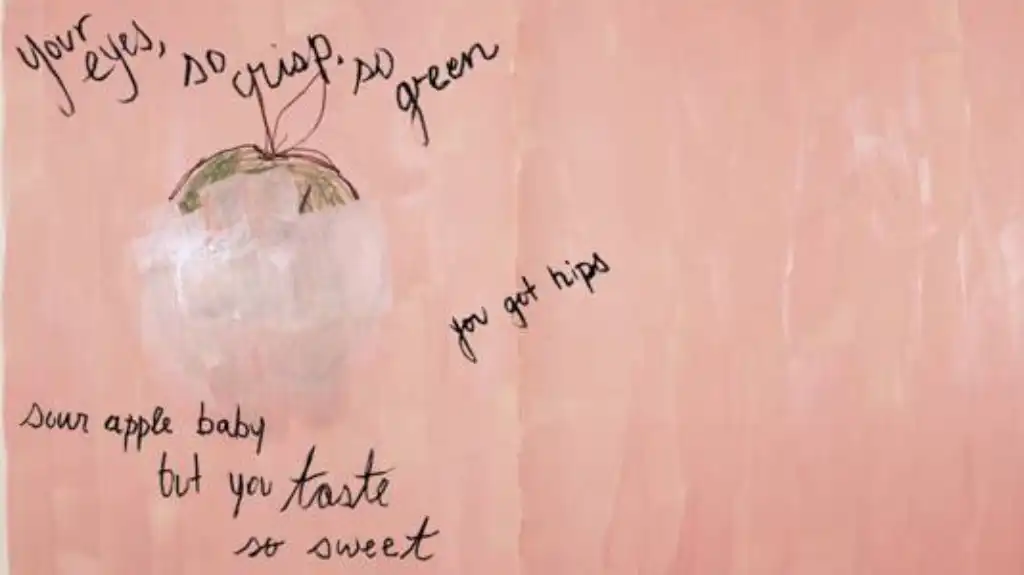 your eyes, so crisp. so green
you got hips
sour apple baby
but you taste
so sweet